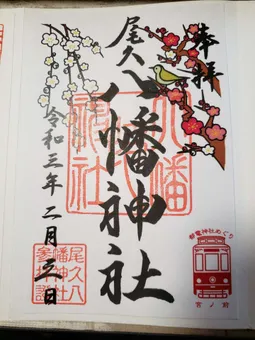 奉拝
尾久八幡神社
令和三年二月三日
八幡神社
尾久八幡神社参拝證
都電神社めぐり
宮ノ前